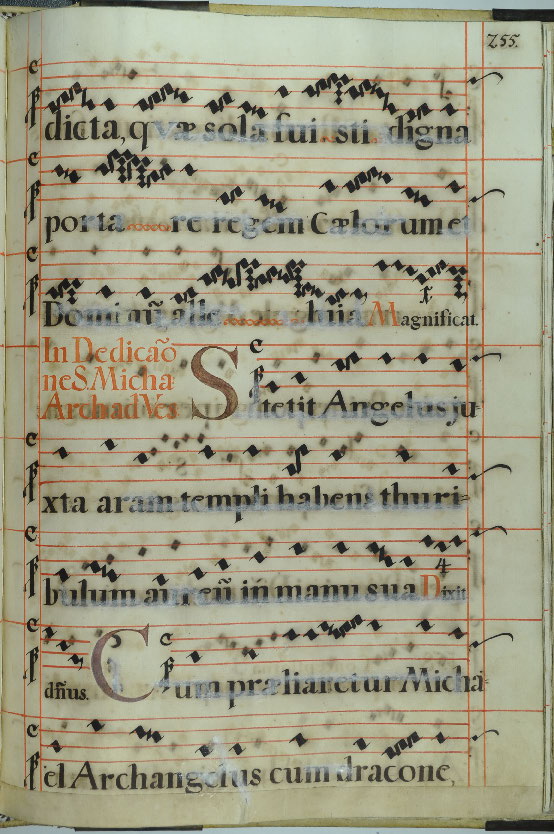 255.
dicta, quæ sola fuisti digna
portare regem Cælorum et
Dominũ alleluia Magnificat.
In Dedicaõ
ne S. Micha
Arch ad Ves
Stetit Angelus ju-
xta aram templi habens thuri=
bulum aureũ in manu sua Dixit
dñus. Cum præliaretur Micha-
el Archangelus cum dracone,